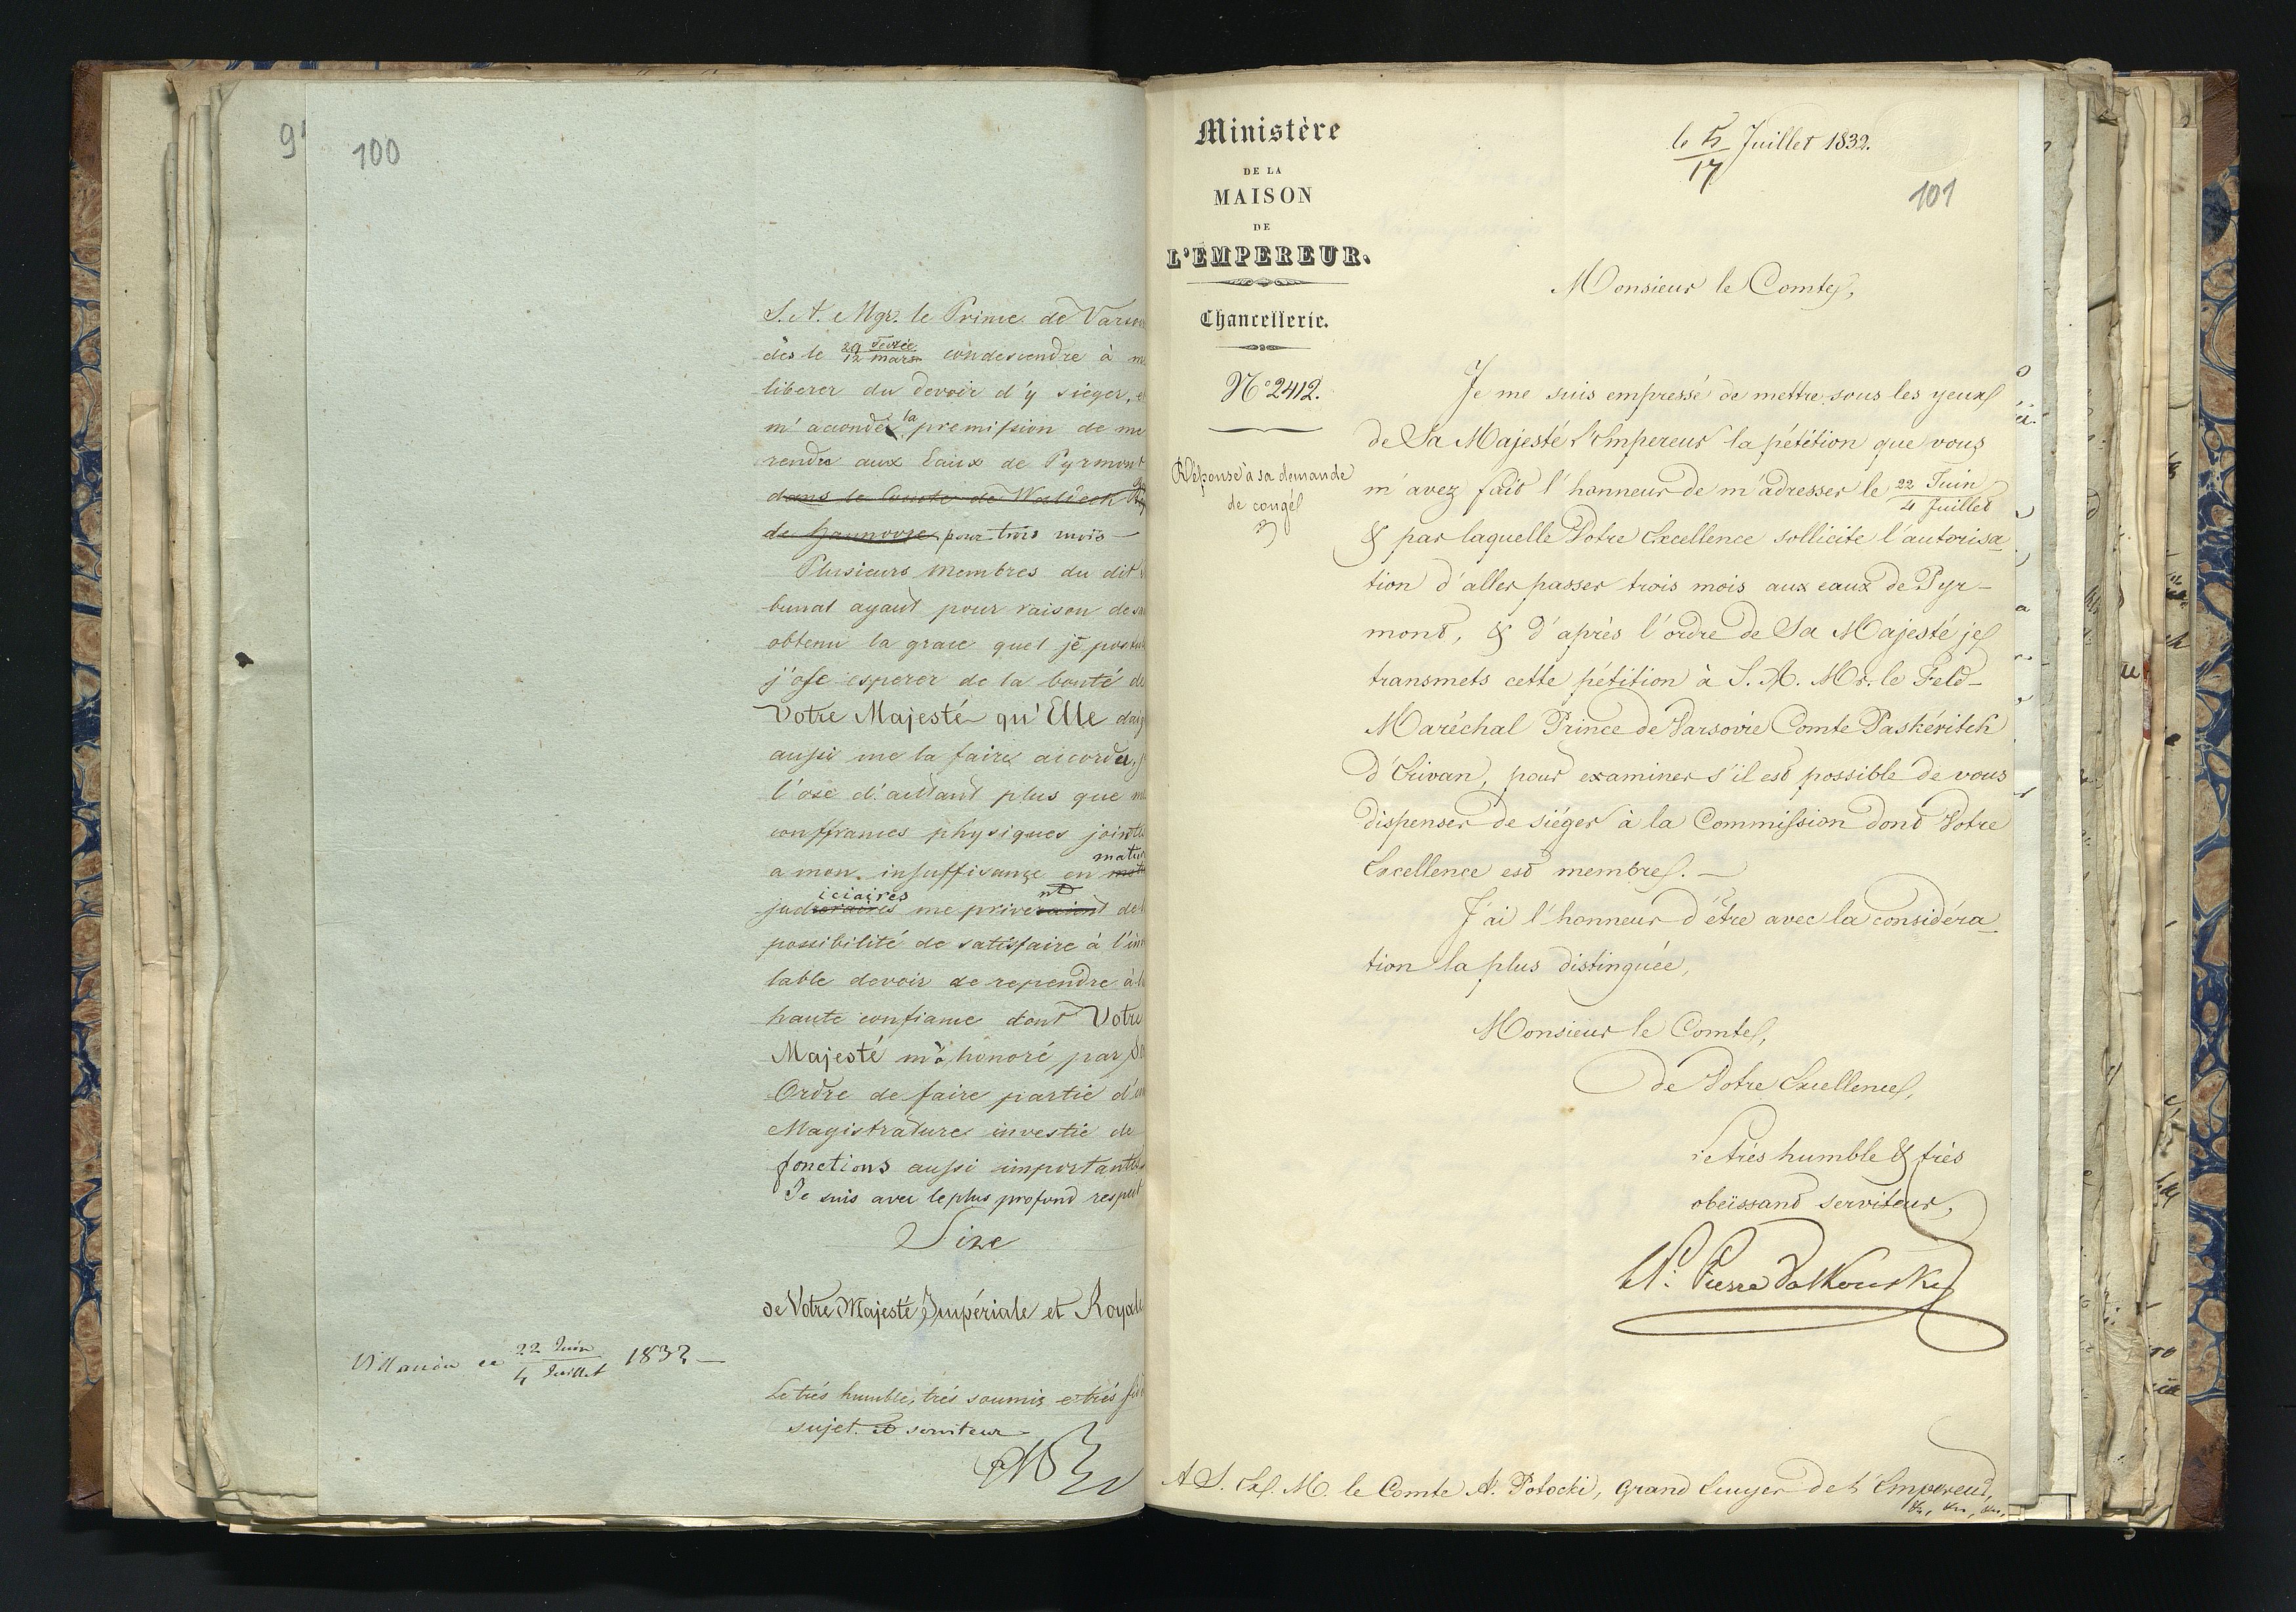 9
100
S. A. Mgr. le Prince de Varso
dès le 29 Fevrie / 12 mars condescendre à m
liberer du devoir d'y sieger, e
m'accorder la premission de me
rendre aux Eaux de Pyrmont
dans le Comté de Waldeck
de Hannovre pour trois mois —
Plusieurs membres du dit
bunal ayant pour raison de sa
obtenu la grace quel je postu
j'ose esperer de la bonté de
Votre Majesté qu'Elle daig
aussi me la faire accorder, j
l'ose d'autant plus que m
souffrances physiques jointe
matie
a mon insuffisance en
iciaires nt
judi me prive de
possibilité de satisfaire à l'in
table devoir de rependre à l
haute confiance dont Votre
Majesté m'a honoré par So
Ordre de faire partie d'un
Magistrature investie de
fonctions aussi importantes
Je suis avec le plus profond respect
Sire
de Votre Majesté Impériale et Royale
Villanòv ce 22 Juin / 4 Juillet 1832 —
Le trés humble, trés soumis et trés fid
sujet et serviteur
Ministère
DE LA
MAISON
DE
L'EMPEREUR.
Chancellerie.
No 2412.
Réponse à sa demande
de congé
le 5 / 17 Juillet 1832.
101
Monsieur le Comte,
Je me suis empressé de mettre sous les yeux
de Sa Majesté l'Empereur la pétition que vous
m'avez fait l'honneur de m'adresser le 22 Juin / 4 Juillet
& par laquelle Votre Excellence sollicite l'autorisa-
tion d'aller passer trois mois aux eaux de Pyr-
mont, & d'après l'ordre de Sa Majesté je
transmets cette pétition à S. A. Mr. le Feld-
Maréchal Prince de Varsovie Comte Paskévitch
d'Erivan, pour examiner s'il est possible de vous
dispenser de siéger à la Commission dont Votre
Excellence est membre. —
J'ai l'honneur d'être avec la considéra-
tion la plus distinguée,
Monsieur le Comte,
de Votre Excellence,
le très humble & très
obéissant serviteur,
Pr. Pierre Volkonsky
A S. Ex. M. le Comte A. Potocki, Grand Ecuyer de l'Empereur,
&c, &c, &c,